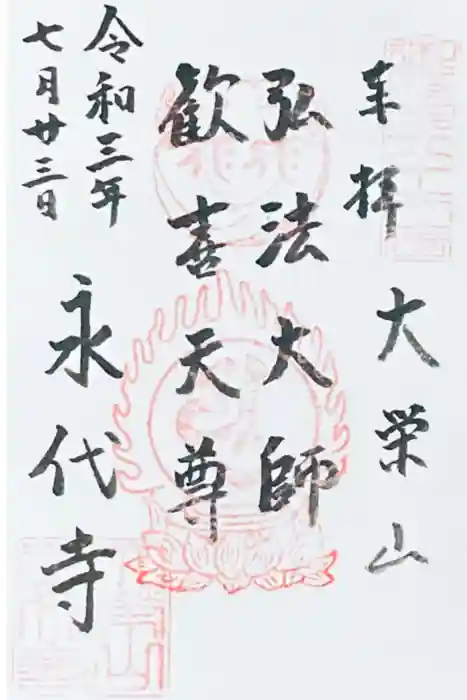 奉拝
大栄山
弘法大師
歓喜天尊
令和三年
七月廿三日
永代寺